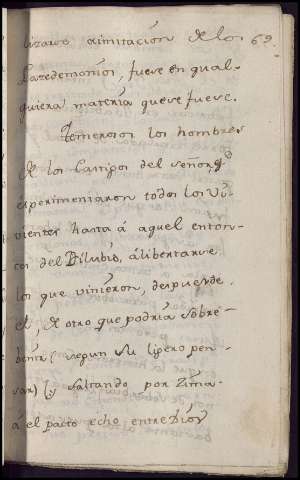 lizarse a imitacion de los 69.
Lacedemonios, fuese en qual-
quiera materia que se fuese.
Temerosos los hombres
de los Castigos del señor, qᵉ
experimentaron todos los Vi-
vientes hasta á aquel enton-
ces del Dilubio, á libertarse
los que vinieron, despues de
el, de otro que podria sobre-
benir (segun su ligero pen-
sar) (y saltando por Zima
á el pacto echo entre Dios